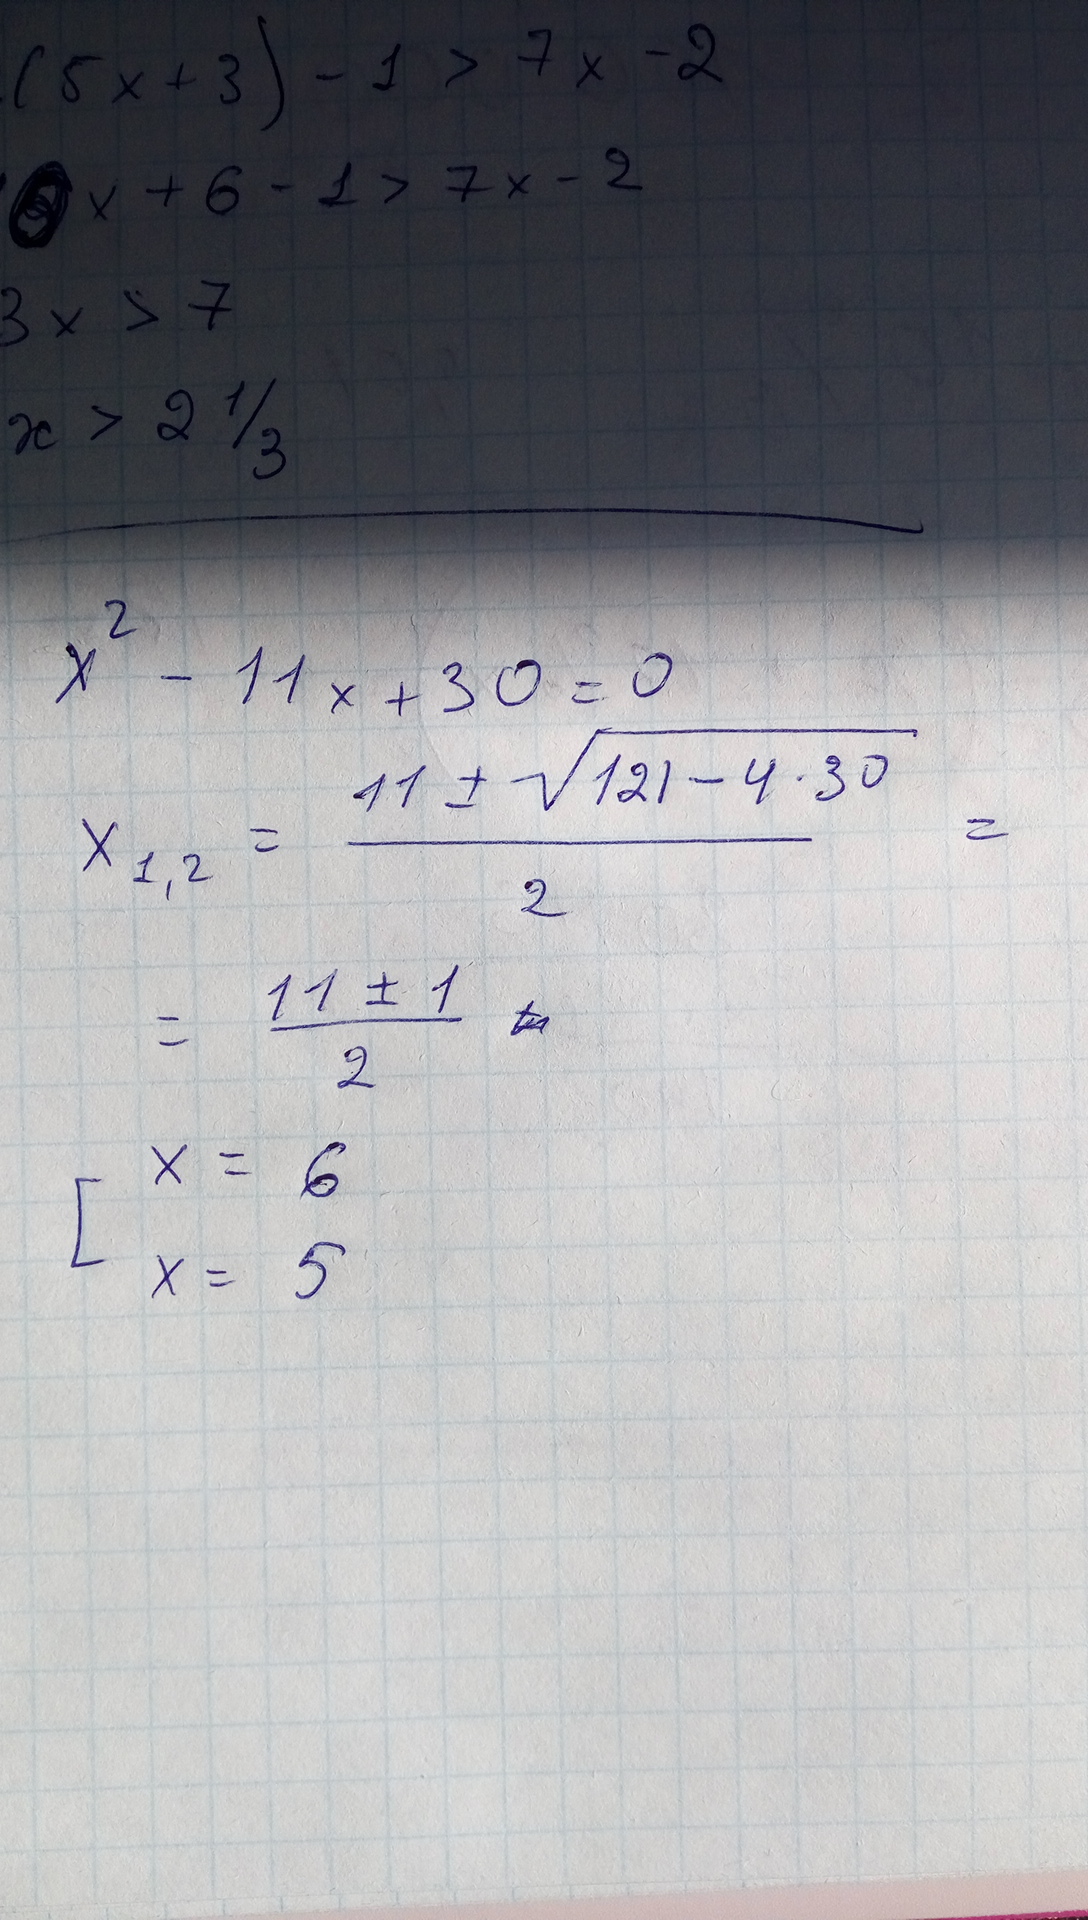 (5x+3) - 1 > 7x - 2
x + 6 - 1 > 7x - 2
3x > 7
x > 2 1/3
x² - 11x + 30 = 0
x₁,₂ = (11 ± √(121 - 4·30))/2 =
= (11 ± 1)/2
[ x = 6
x = 5